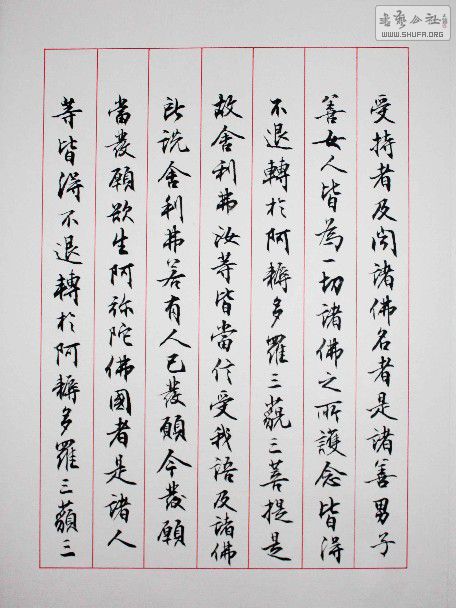 書藝公社
WWW.SHUFA.ORG
受持者及闻諸佛名者是諸善男子
善女人皆為一切諸佛之所護念皆得
不退轉於阿耨多羅三藐三菩提是
故舍利弗汝等皆當信受我語及諸佛
所說舍利弗若有人已發願今發願
當發願欲生阿弥陀佛國者是諸人
等皆得不退轉於阿耨多羅三藐三